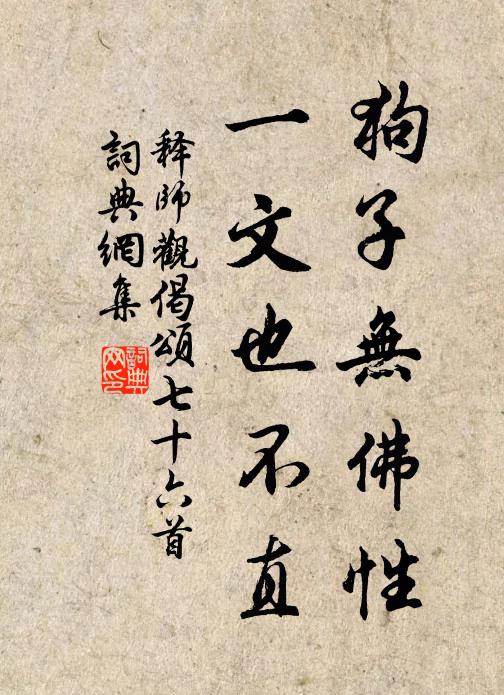 狗子無佛性
一文也不直
释師觀偈頌七十六首
詞典網集
詞典網印